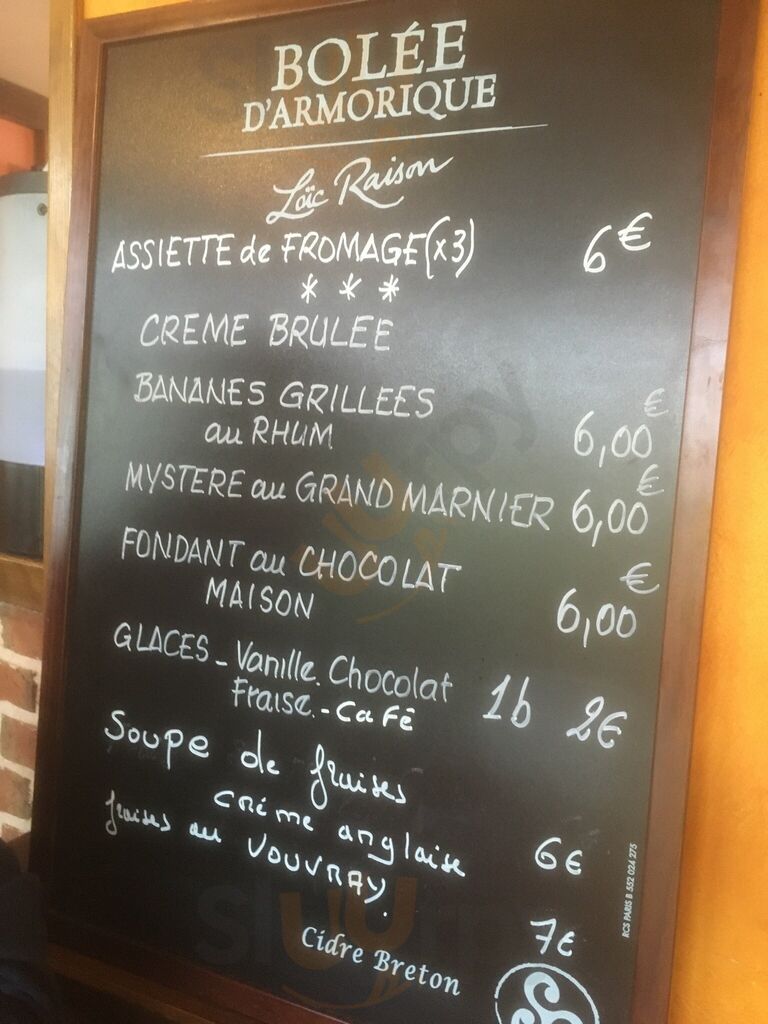 BOLÉE
D'ARMORIQUE
Loïc Raison
ASSIETTE de FROMAGE (x3) 6€
* * *
CREME BRULEE
BANANES GRILLEES
au RHUM 6,00€
MYSTERE au GRAND MARNIER 6,00€
FONDANT au CHOCOLAT
MAISON 6,00€
GLACES - Vanille. Chocolat
Fraise. - CaFé 1b 2€
Soupe de fraises
crème anglaise 6€
fraises au VOUVRAY. 7€
Cidre Breton
RCS PARIS B 552 024 275
sluurpy
sluurpy